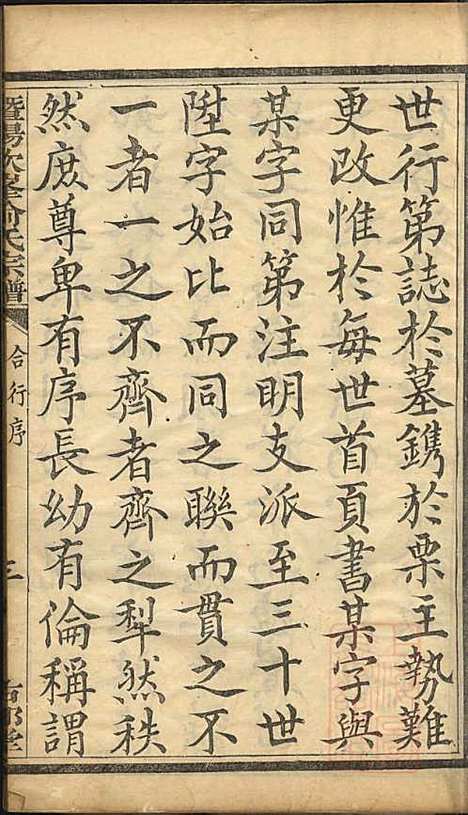 世行第誌於墓鐫於栗主勢難
更改惟於每世首頁書某字與
某字同第注明支派至三十世
陞字始比而同之聯而貫之不
一者一之不齊者齊之犁然秩
然庶尊卑有序長幼有倫稱謂
暨陽次峯俞氏宗譜
合行序
三